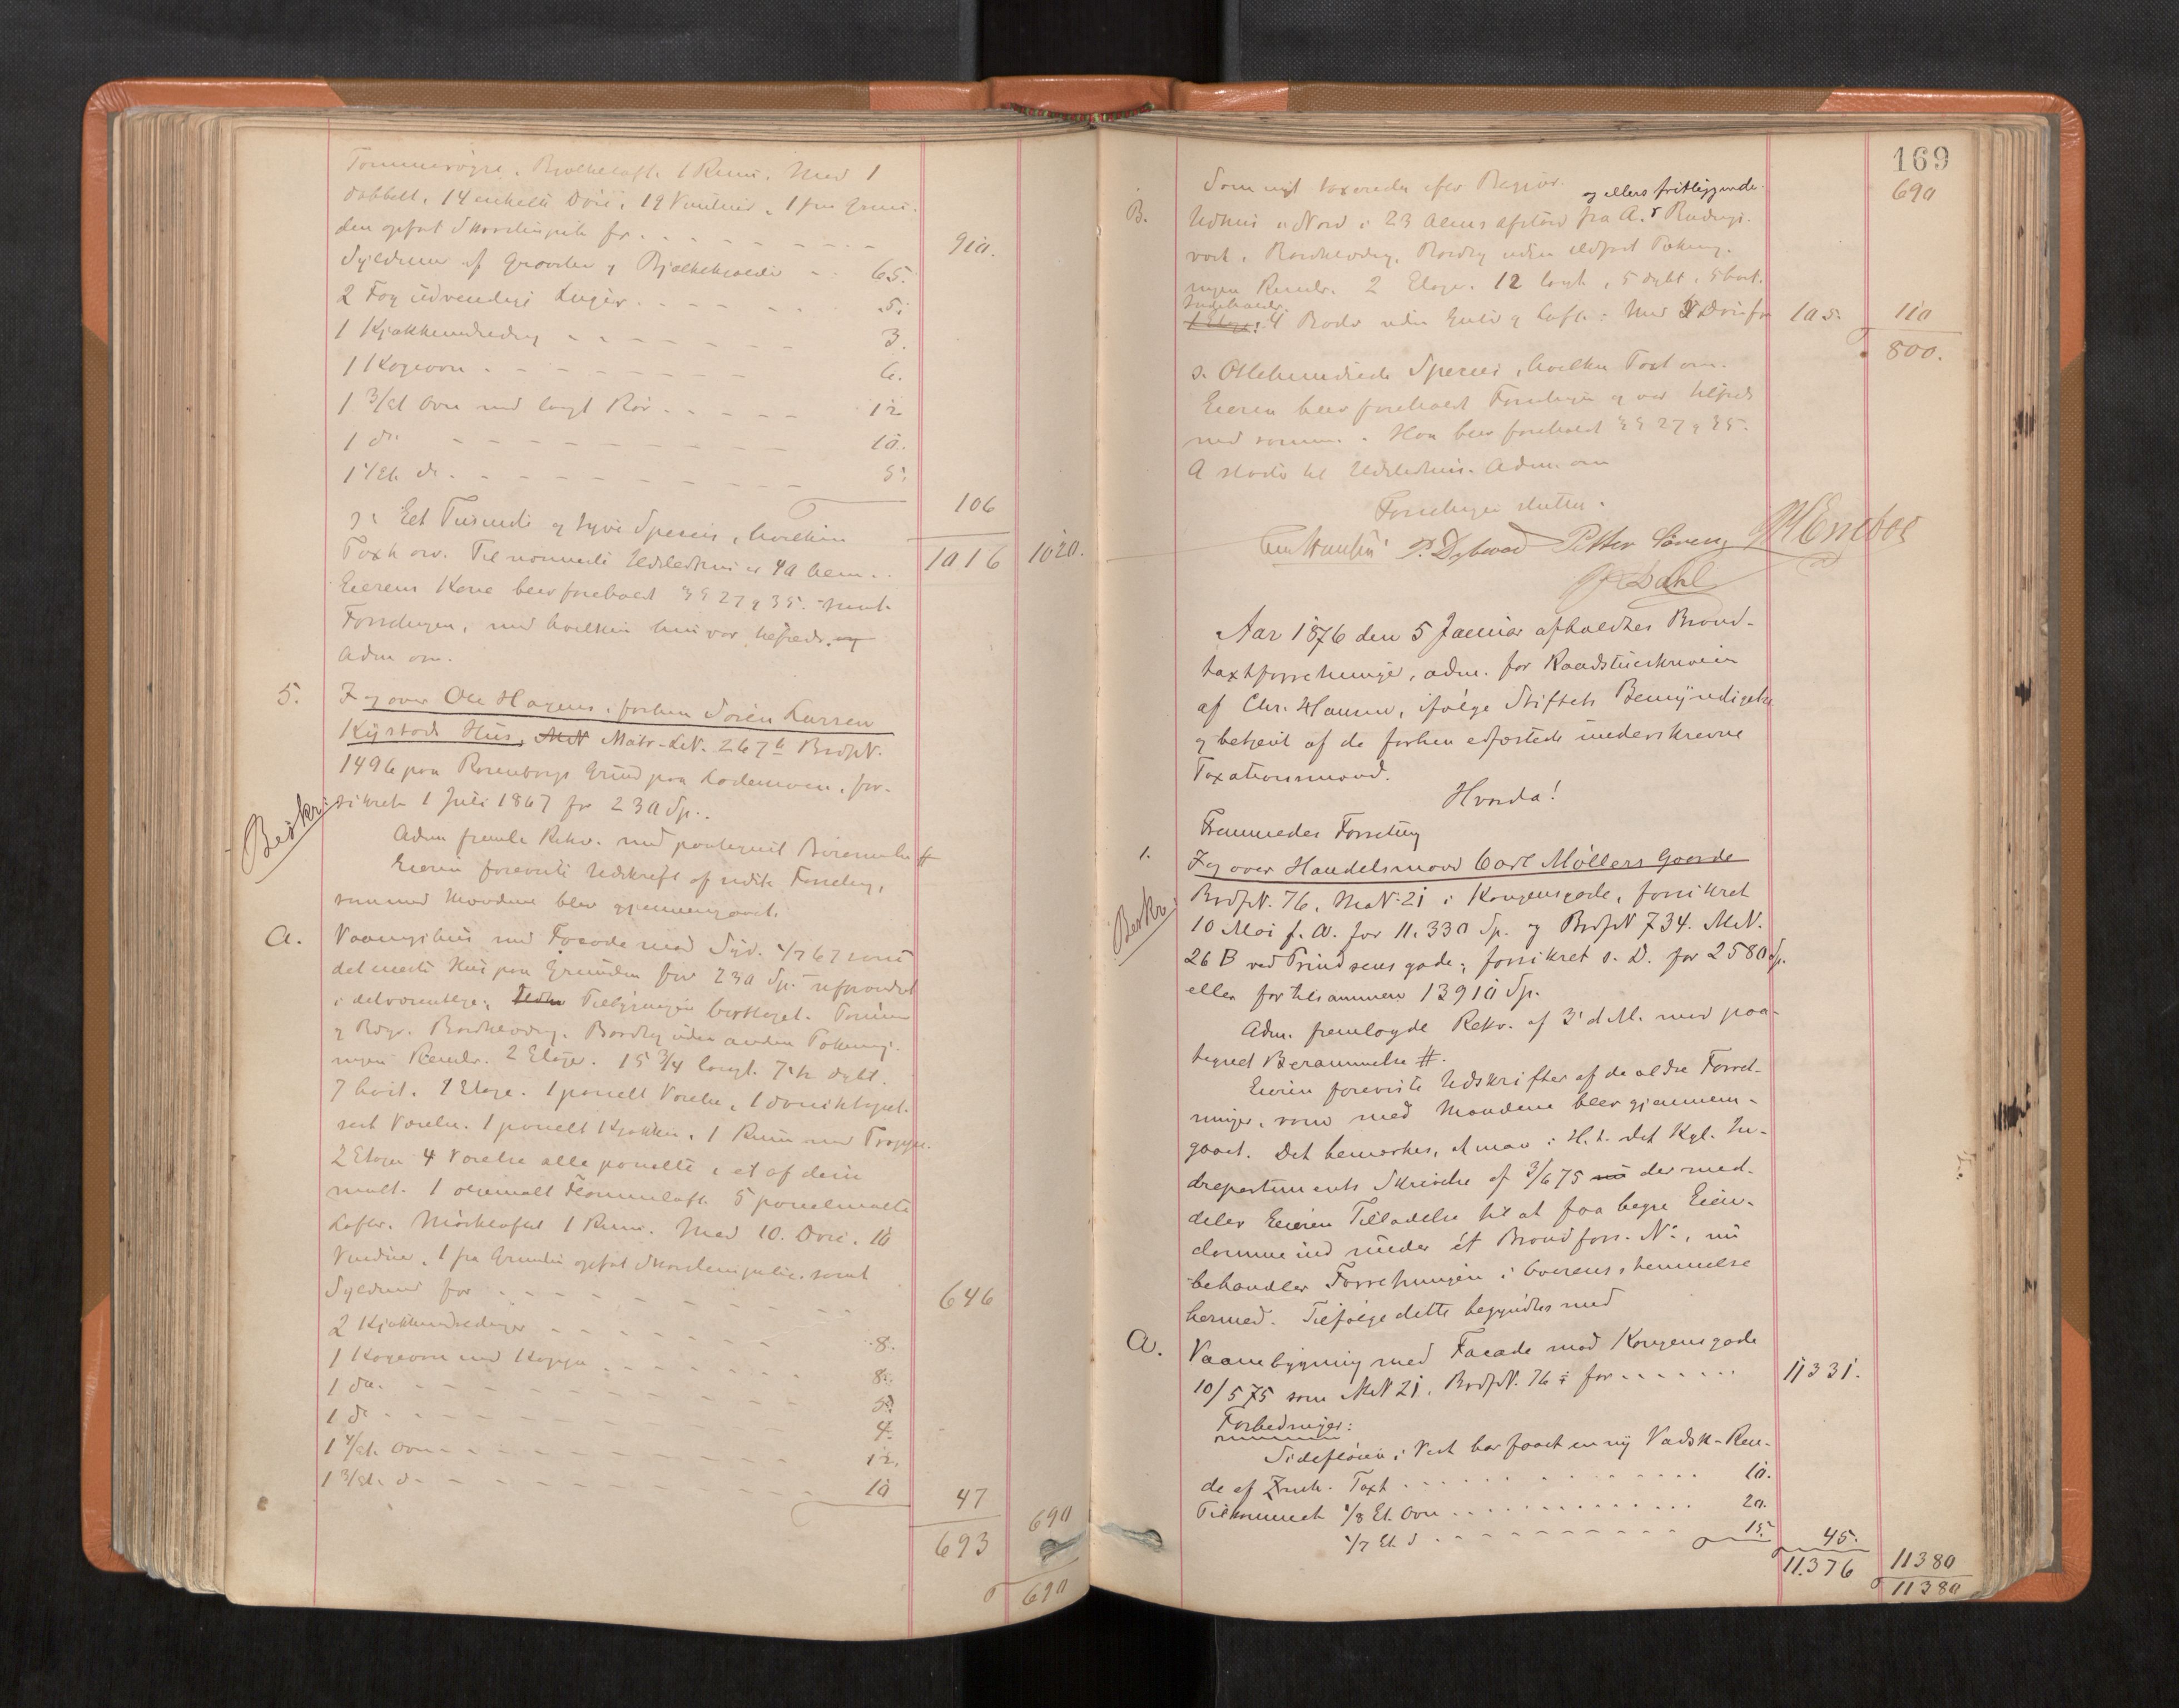 Tømmer Bjelkeloft. 1 Rum. Med 1
dobbelt, 14 enkelte Döre, 19 Vinduer, 1 fra Grun-
den opført Skorstenspibe for 910.
Syldmur af Graasten og Bjælkekjælder 65.
2 Fag udvendige Luger 5.
1 Kjøkkenindredng 3.
1 Kogeovn 6.
1 3/Et Ovn med langt Rör 12
1 do 10.
1 do. 5.
106
ɔ: Eet Tusinde og tyve Specier, hvilken
Taxt ovv. Til nærmeste Ildsledhus er 40 Alen.
1016 1020.
Eierens Kone blev foreholdt §§ 27 og 35 samt
Forretningen, med hvilken hun var tilfreds. og
Adm om.
5. I og over Ole Hagens, forhen Sören Larsen
Kystads Hus, MN Matr-LN. 267b BrdfN.
1496 paa Rosenborgs Grund paa Lademoen, for-
Beskr. sikret 1 Juli 1867 for 230 Sp.
Adm fremle Rekv. med paategnet Berammelse #
Eieren foreviste Udskrift af sidste Forretng,
som med Mændene blev gjennemgaaet.
A. Vaaningshus med Facade mod Syd. 1/7 67 som
det meste Hus paa Grunden for 230 Sp.
i det væsentlige; Tilbygningen borttaget. Tømmer
og Bdgv. Bordklædng. Bordtag uden anden Tækning.
ingen Rendr. 2 Etager. 15 3/4 langt. 7 1/2 dybt.
7 høit. 1 Etage. 1 panelt Værelse, 1
seret Værelse. 1 panelt Kjøkken, 1 Rum med Trappe.
2 Etage 4 Værelse alle panelte, et af dem
malt. 1 oljemalt Himmelloft. 5 panelmalte
Lofter. Mörkloftet 1 Rum. Med 10. Döre. 10
Vinduer, 1 fra Grunden opført Skorstenspibe, samt
Syldmur for 646
2 Kjøkkenindredninger 8.
1 Kogeovn med Kappe 8.
1 do. 5.
1 do 4.
1 4/Et. Ovn 12.
1 3/Et. do 10
47 690
693
690
169
Som nyt taxeredes efter Begjær. 690
og ellers fritliggende.
B. Udhus i Nord i 23 Alens afstand fra A. Bindings-
værk, Bordklædng, Bordtag uden ildfast Tækning.
ingen Rendr. 2 Etage. 12 langt, 5 dybt, 5 høit.
Indeholder
1 Etage: 4 Boder uden Gulv og Loft. Med Döre for 105. 110
800.
ɔ: Ottehundrede Specier, hvilken Taxt om.
Eieren blev foreholdt Forretningen og var tilfreds
med samme. Han blev foreholdt §§ 27 og 35.
A støder til Ildsledhus. Adm. om
Forretningen sluttet.
Chr Hansen P. Dybwad Petter Sörens
Dahl
Aar 1876 den 5 Januar afholdtes Brand-
taxtforretninge, adm. for Raadstueskriveren
af Chr. Hansen, ifölge Stiftets Bemyndigelse
og betjent af de forhen edfæstede underskrevne
Taxationsmænd.
Hvorda!
Fremmedes Forretng
1. I og over Handelsmand Carl Möllers Gaarde
BrdfN. 76, MaN. 21 i Kongensgade, forsikret
Beskr. 10 Mai f. A. for 11.330 Sp. og BrdfN 734. MN.
26 B ved Prindsens gade, forsikret s. D. for 2580 Sp.
eller for tilsammen 13910 Sp.
Adm. fremlagde Rekv. af 3' d.M. med paa-
tegnet Berammelse #.
Eieren foreviste Udskrifter af de ældre Forret-
ninger, som med Mændene blev gjennem-
gaaet. Det bemærkes, at man i H.t. det Kgl. In-
drepartements Skrivelse af 3/6 75 der med-
deler Eieren Tilladelse til at faa begge Eien-
domme ind under ét Brandfors. No, nu
behandler Forretningen i Overensstemmelse
hermed. Tilfölge dette begyndtes med
A. Vaanebygning med Facade mod Kongensgade
10/5 75 som MN 21, BrdfN. 76 for 11331.
Forbedringer:
Sideflöien i Vest har faaet en ny Vadsk-Ren-
de af Zink. Taxt 10.
Tilkommet 1/8 Et. Ovn 20.
1/7 Et. d 15. 45.
11.376 11380
11380